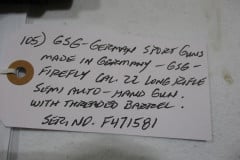 105) GSG-GERMAN SPORT GUNS
MADE IN GERMANY - GSG-
FIREFLY CAL. 22 LONG RIFLE
SEMI AUTO - HAND GUN.
WITH THREADED BARREL.
SER. NO. F471581